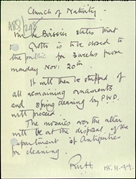 Church of Nativity
Mr. Brissin states that
Grotto is to be closed to
the public for 3 weeks from
Monday Nov. 20th
It will then be stripped of
all remaining ornaments
and spring cleaning by P.W.D.
will proceed.
The mosaics near the altar
will be at the disposal of the
Department of Antiquities
for cleaning.